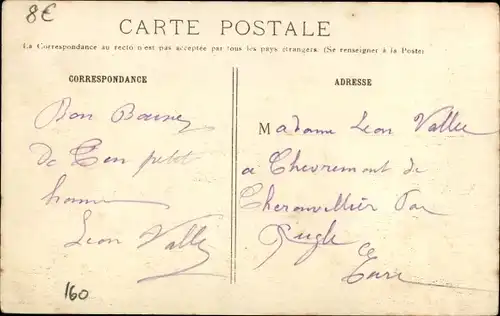 8€
CARTE POSTALE
La Correspondance au recto n'est pas acceptée par tous les pays étrangers. (Se renseigner à la Poste)
CORRESPONDANCE
Bon Baiser
de ton petit
homme
Leon Vallée
160
ADRESSE
Madame Leon Vallée
a Chevremont de
par